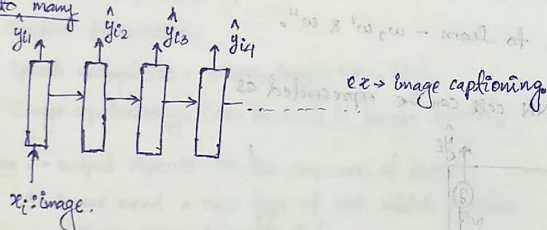 to many
ŷi1 ŷi2 ŷi3 ŷi4
ex → image captioning.
xi : image.